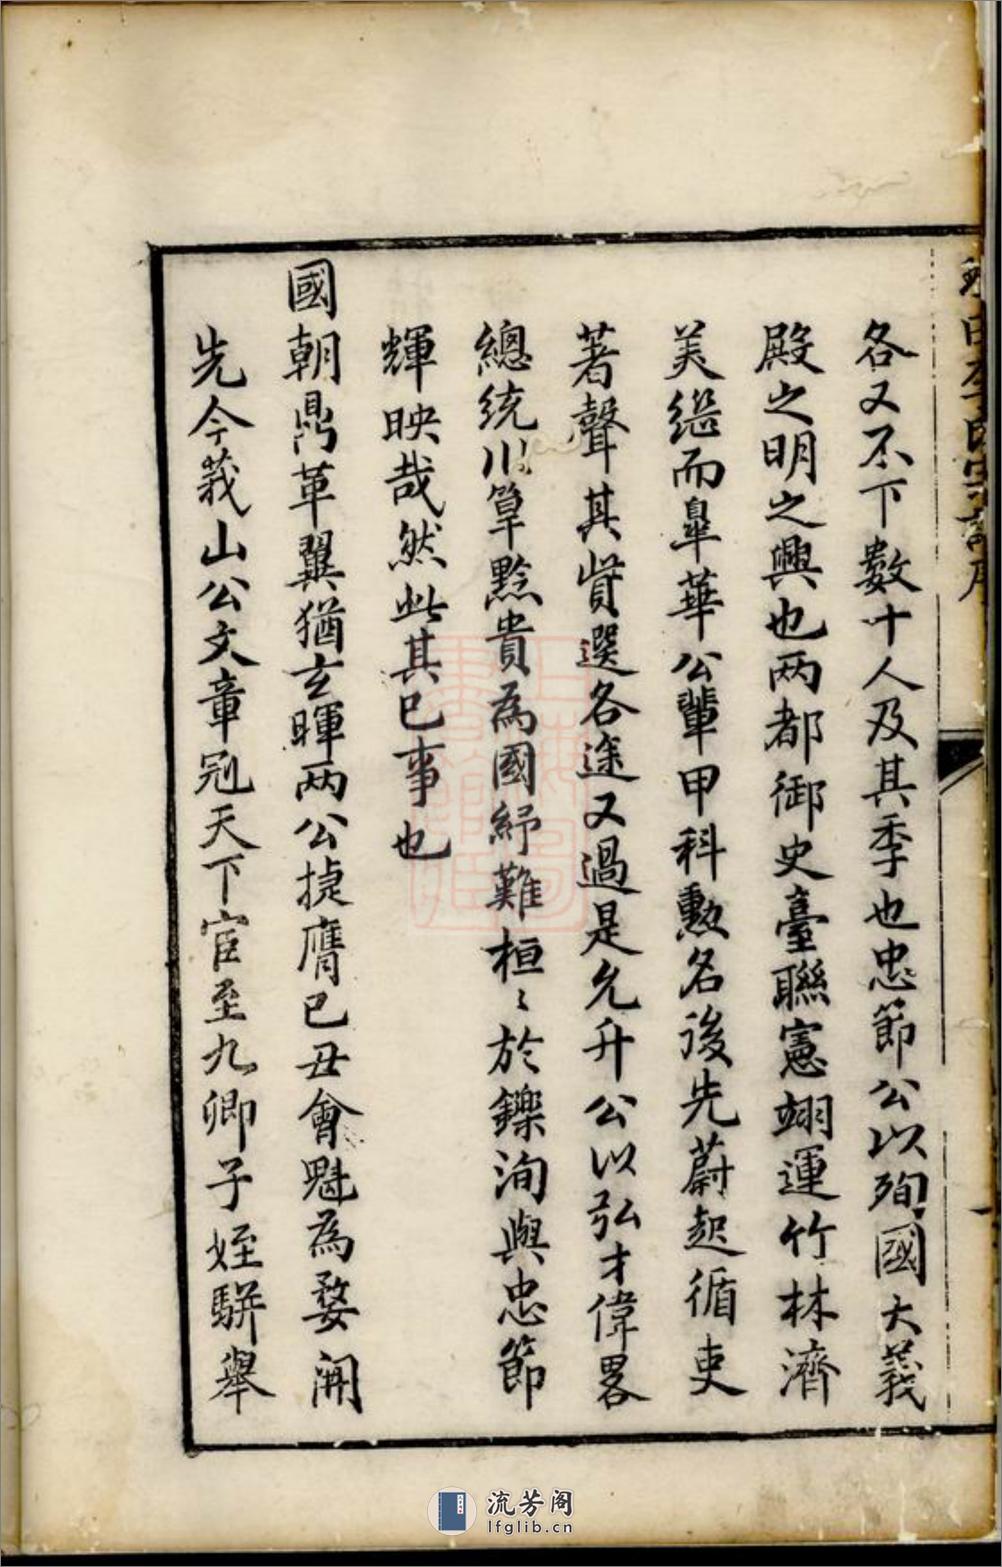 各又不下數十人及其季也忠節公以殉國大義
殿之明之興也两都御史臺聯憲翊運竹林濟
美継而臯華公輩甲科勲名後先蔚起循吏
著聲其貲選各途又過是允升公以弘才偉畧
總統川箄黔貴為國紓難桓〻於鑠洵與忠節
輝映哉然此其已事也
國朝鼎革翼猶玄暉两公捷膺已丑會魁為婺開
先今莪山公文章冠天下官至九卿子姪駢舉
李氏宗譜序
流芳阁
lfglib.cn